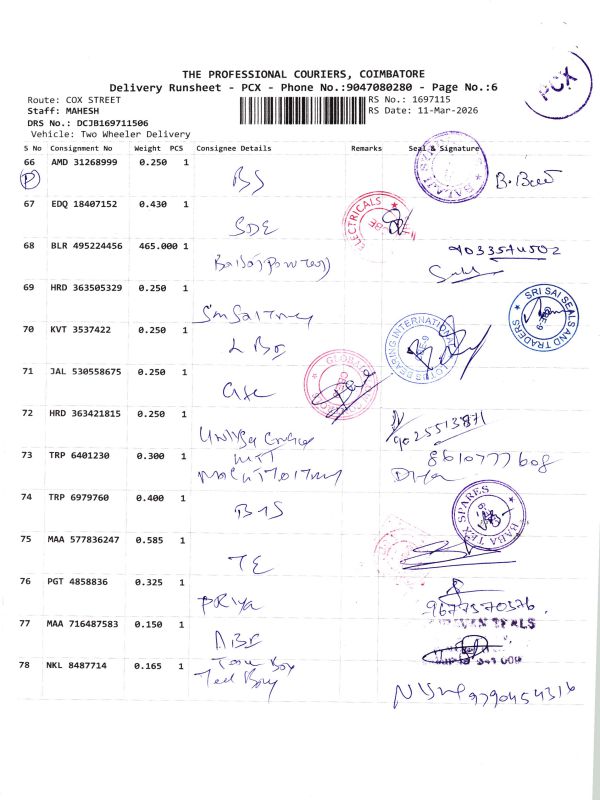 THE PROFESSIONAL COURIERS, COIMBATORE
Delivery Runsheet - PCX - Phone No.:9047080280 - Page No.:6
PCX
Route: COX STREET
RS No.: 1697115
Staff: MAHESH
RS Date: 11-Mar-2026
DRS No.: DCJB169711506
Vehicle: Two Wheeler Delivery
S No Consignment No Weight PCS Consignee Details Remarks Seal & Signature
66 AMD 31268999 0.250 1 BS
P
67 EDQ 18407152 0.430 1 SDE
ELECTRICALS
68 BLR 495224456 465.000 1
9033574502
69 HRD 363505329 0.250 1
SRI SAI SEALS AND TRADERS
70 KVT 3537422 0.250 1
LOTUS BEARING INTERNATIONAL
71 JAL 530558675 0.250 1
72 HRD 363421815 0.250 1
9025513871
73 TRP 6401230 0.300 1 MTT
8610777608
74 TRP 6979760 0.400 1
BABA TEX SPARES
75 MAA 577836247 0.585 1 TE
76 PGT 4858836 0.325 1 PRIYA
9677570376
77 MAA 716487583 0.150 1
SEALS
78 NKL 8487714 0.165 1
9790454316